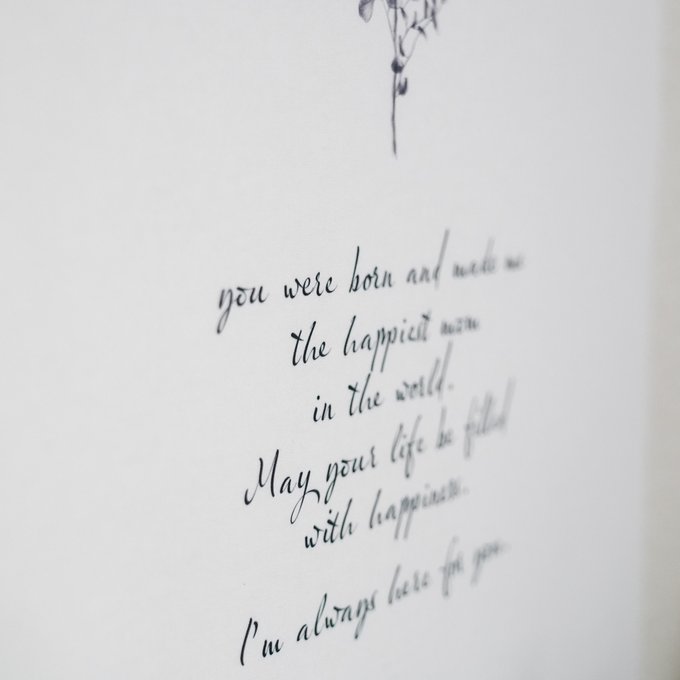 you were born and made me
the happiest mom
in the world.
May your life be filled
with happiness.
I'm always here for you.